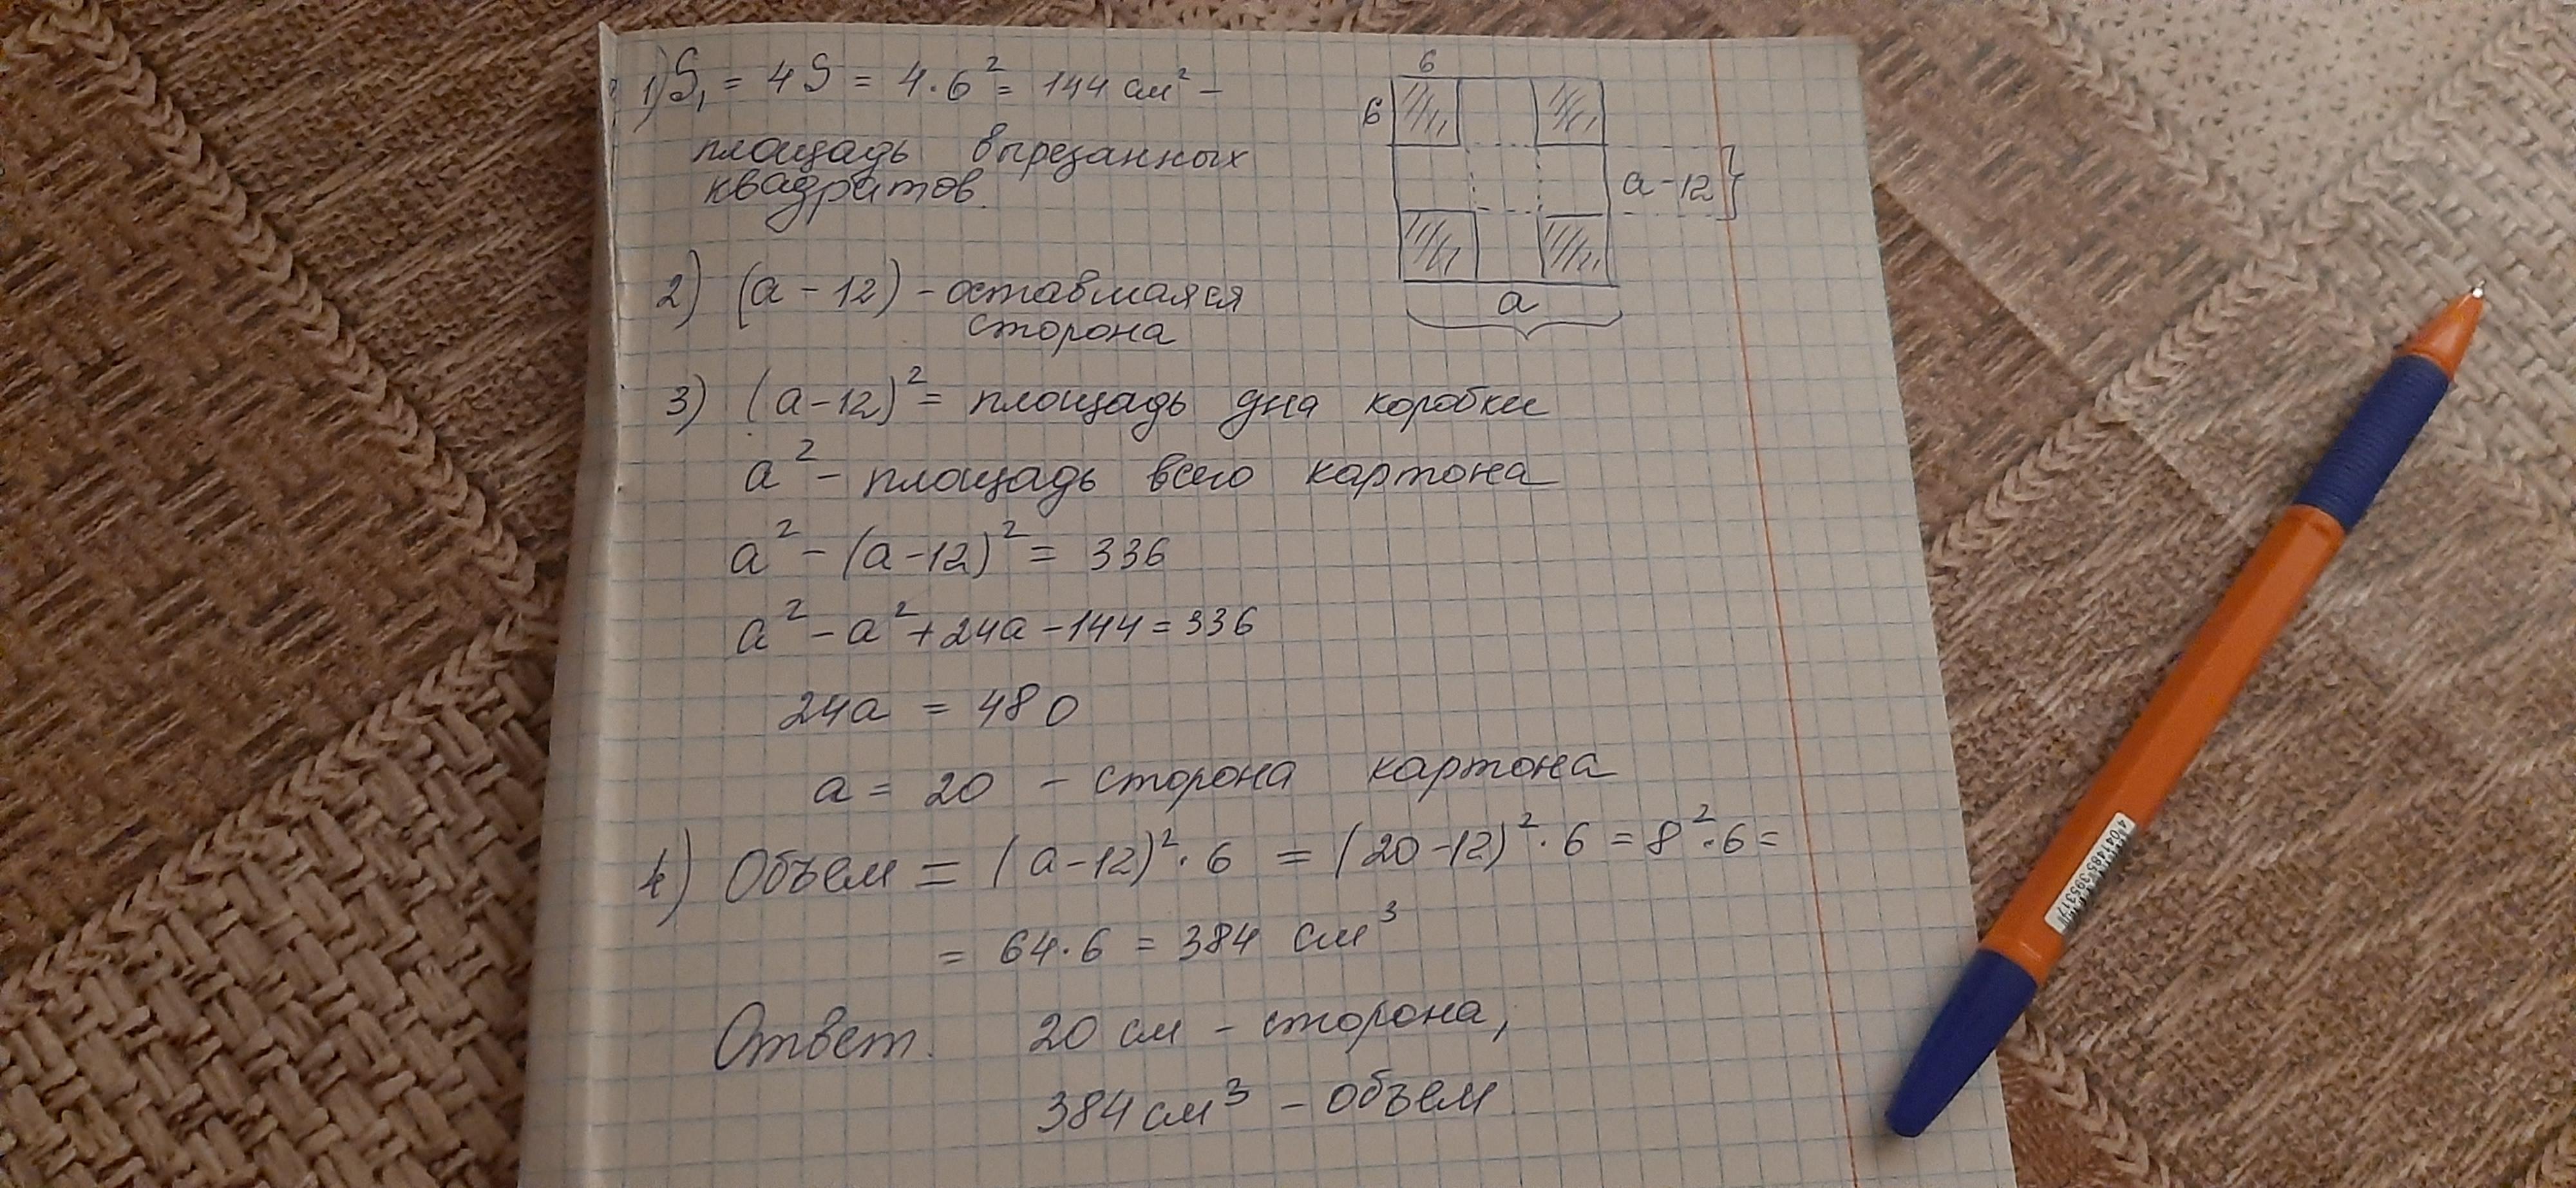 1) S₁ = 4S = 4·6² = 144 см² –
площадь вырезанных
квадратов.
6
6
a-12
a
2) (a - 12) - оставшаяся
сторона
3) (a-12)² = площадь дна коробки
a² - площадь всего картона
a² - (a-12)² = 336
a² - a² + 24a - 144 = 336
24a = 480
a = 20 - сторона картона
4) Объем = (a-12)²·6 = (20-12)²·6 = 8²·6 =
= 64·6 = 384 см³
Ответ. 20 см - сторона,
384 см³ - объем
4 041485 395317